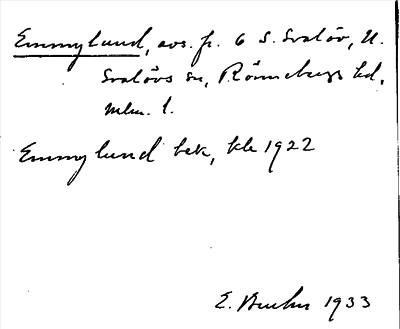 Emmylund, avs. fr. 6 S. Svalöv, N.
Svalövs sn, Rönnebergs hd,
Mlm. l.
Emmylund bek, kle 1922
E. 1933